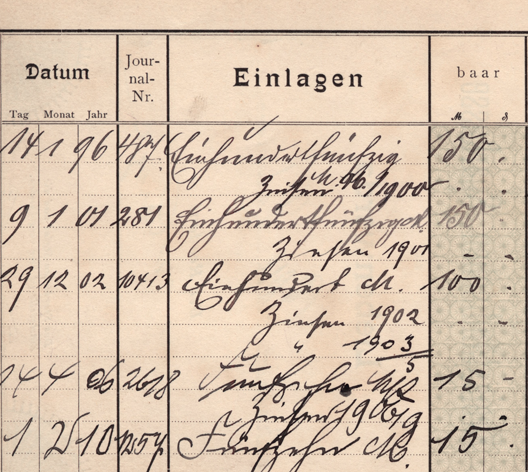 Datum Journal-Nr. Einlagen baar
Tag Monat Jahr M. S
14 1 96 487. Einhundertfünfzig 150 .
Zinsen 1900 . .
9 1 01 281 Einhundertfünfzig 150 .
Zinsen 1901 . .
29 12 02 10413 Einhundert M. 100 .
Zinsen 1902 . .
" 1903
14 4 06 2618 Fünfzehn 15 -
Zinsen 1906/9 . .
1 10 Fünfzehn M. 15 .